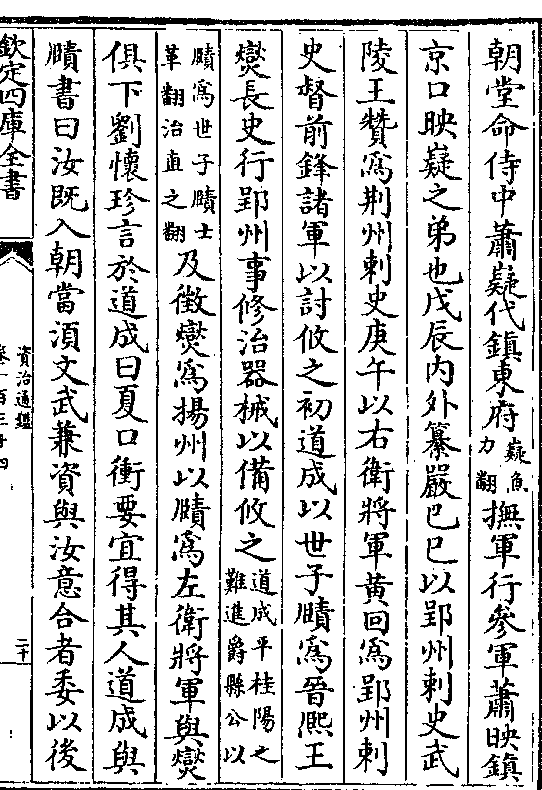 朝堂命侍中蕭嶷代鎮東府嶷魚力翻撫軍行參軍蕭映鎮
京口映嶷之弟也戊辰内外纂嚴己巳以郢州刺史武
陵王贊為荆州刺史庚午以右衛將軍黄回為郢州刺
史督前鋒諸軍以討攸之初道成以世子賾為晉熙王
燮長史行郢州事修治器械以備攸之道成平桂陽之難進爵縣公以
賾為世子賾士革翻治直之翻及徵燮為揚州以賾為左衛將軍與燮
俱下劉懷珍言於道成曰夏口衝要宜得其人道成與
賾書曰汝既入朝當須文武兼資與汝意合者委以後
欽定四庫全書
資治通鑑
卷一百三十四
二十